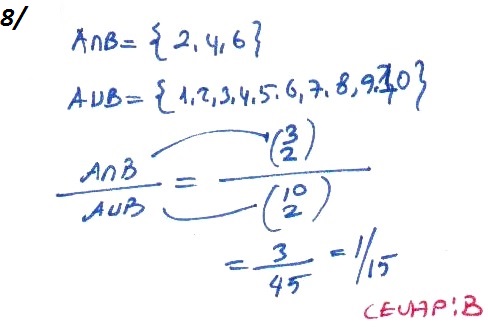 8/
A∩B = {2, 4, 6}
A∪B = {1, 2, 3, 4, 5, 6, 7, 8, 9, 10}
A∩B / A∪B = (3 2) / (10 2)
= 3/45 = 1/15
CEVAP: B